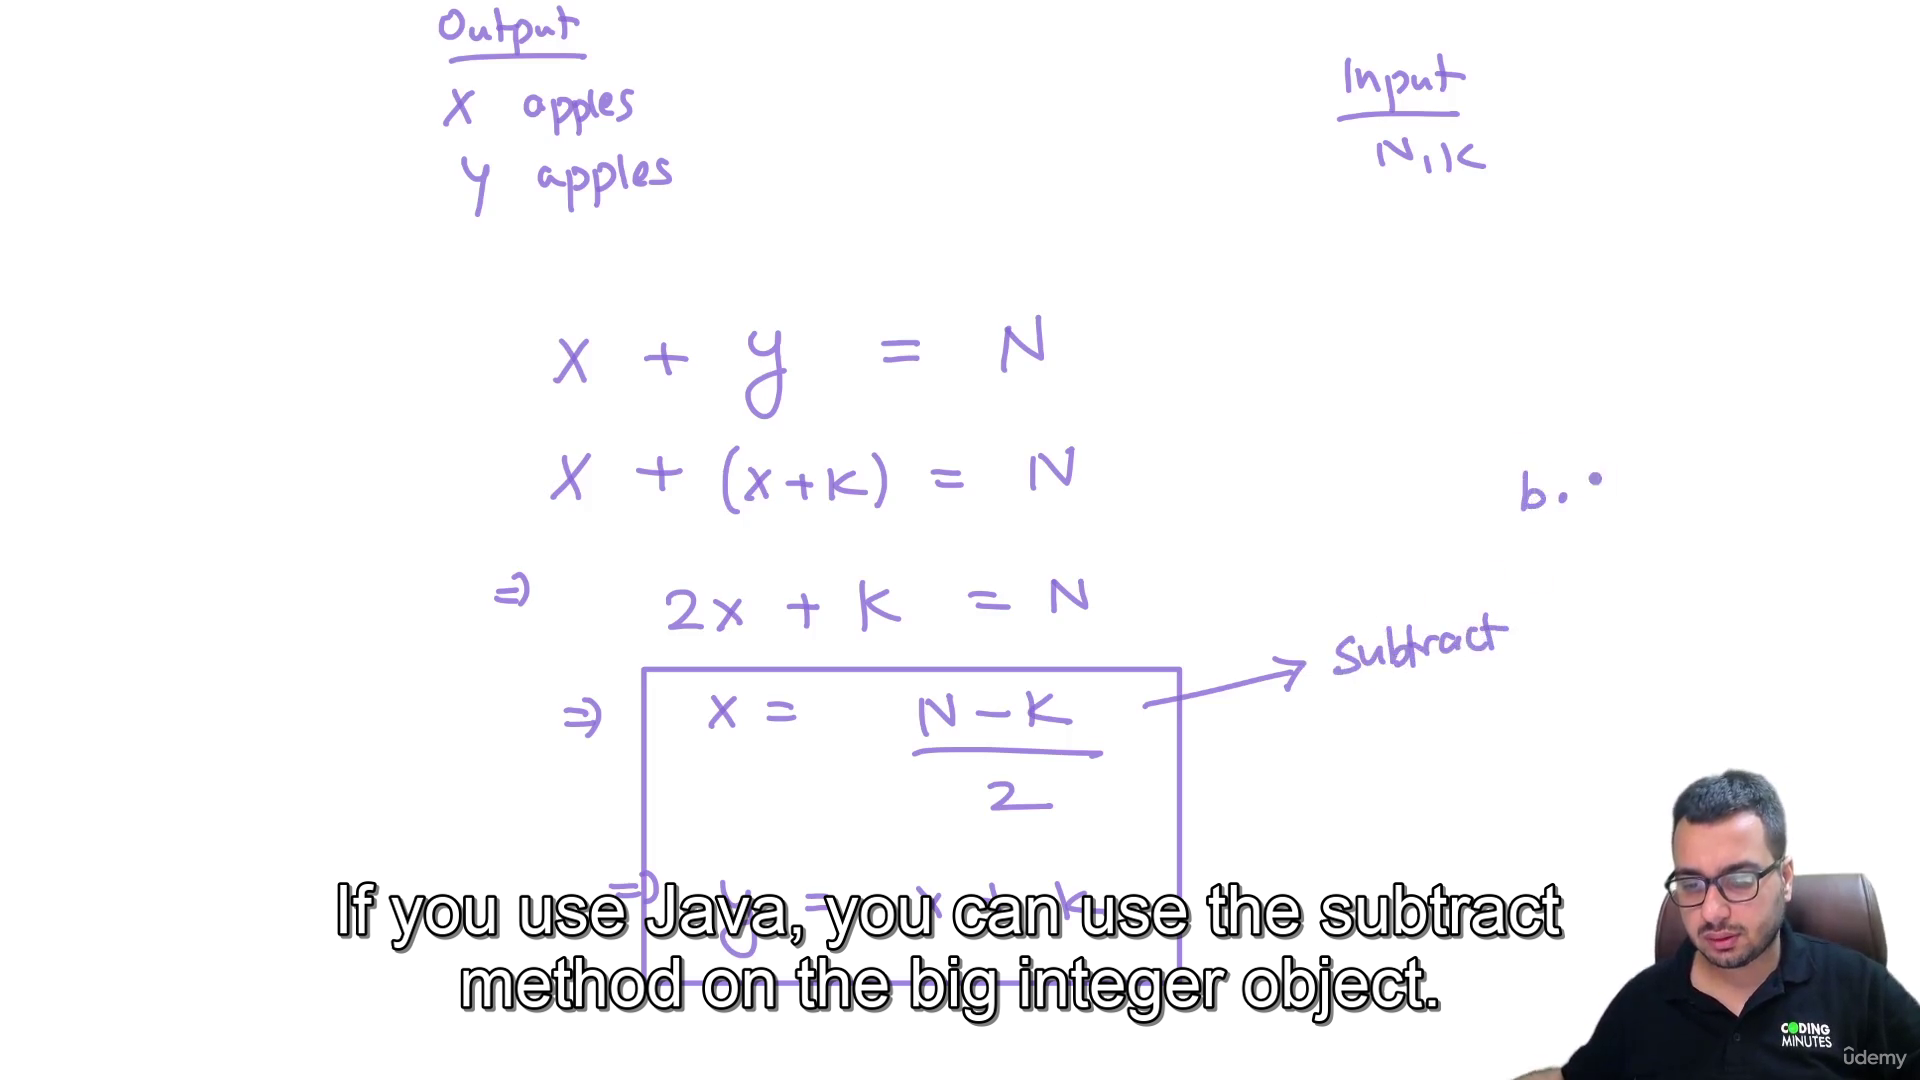 Output
X apples
y apples
Input
N, K
x + y = N
x + (x+K) = N
b.
⇒ 2x + K = N
subtract
⇒ x = N - K
2
⇒ y = x + k
If you use Java, you can use the subtract
method on the big integer object.
CODING
MINUTES
ûdemy